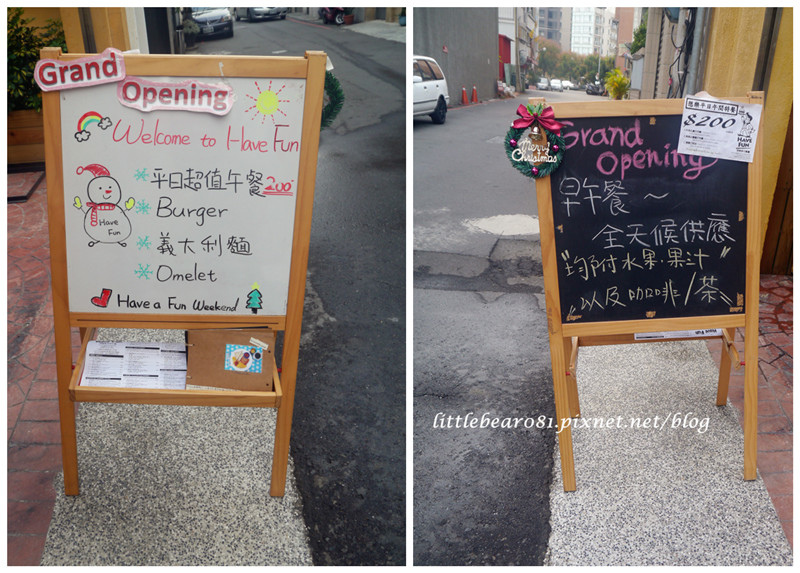 Grand
Opening
Welcome to Have Fun
平日超值午餐200
Burger
Have
Fun
義大利麵
Omelet
Have a Fun Weekend
Merry
Christmas
Grand
Opening
$200
HAVE
FUN
早午餐～
全天候供應
"均附水果.果汁"
"以及咖啡/茶"
littlebear081.pixnet.net/blog